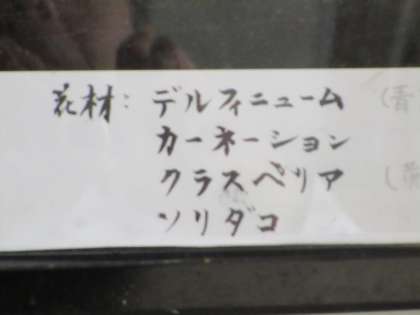 花材：デルフィニューム（青
カーネーション
クラスペリア（
ソリダコ